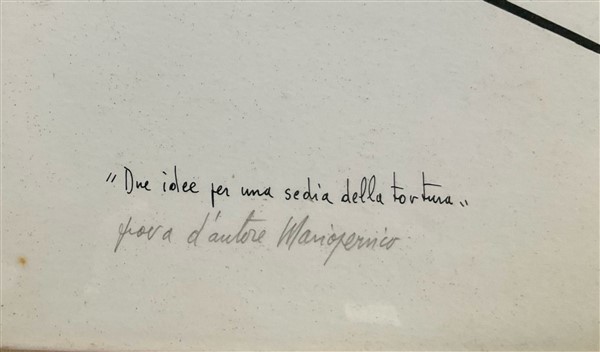 "Due idee per una sedia della tortura"
prova d'autore Mariopernico